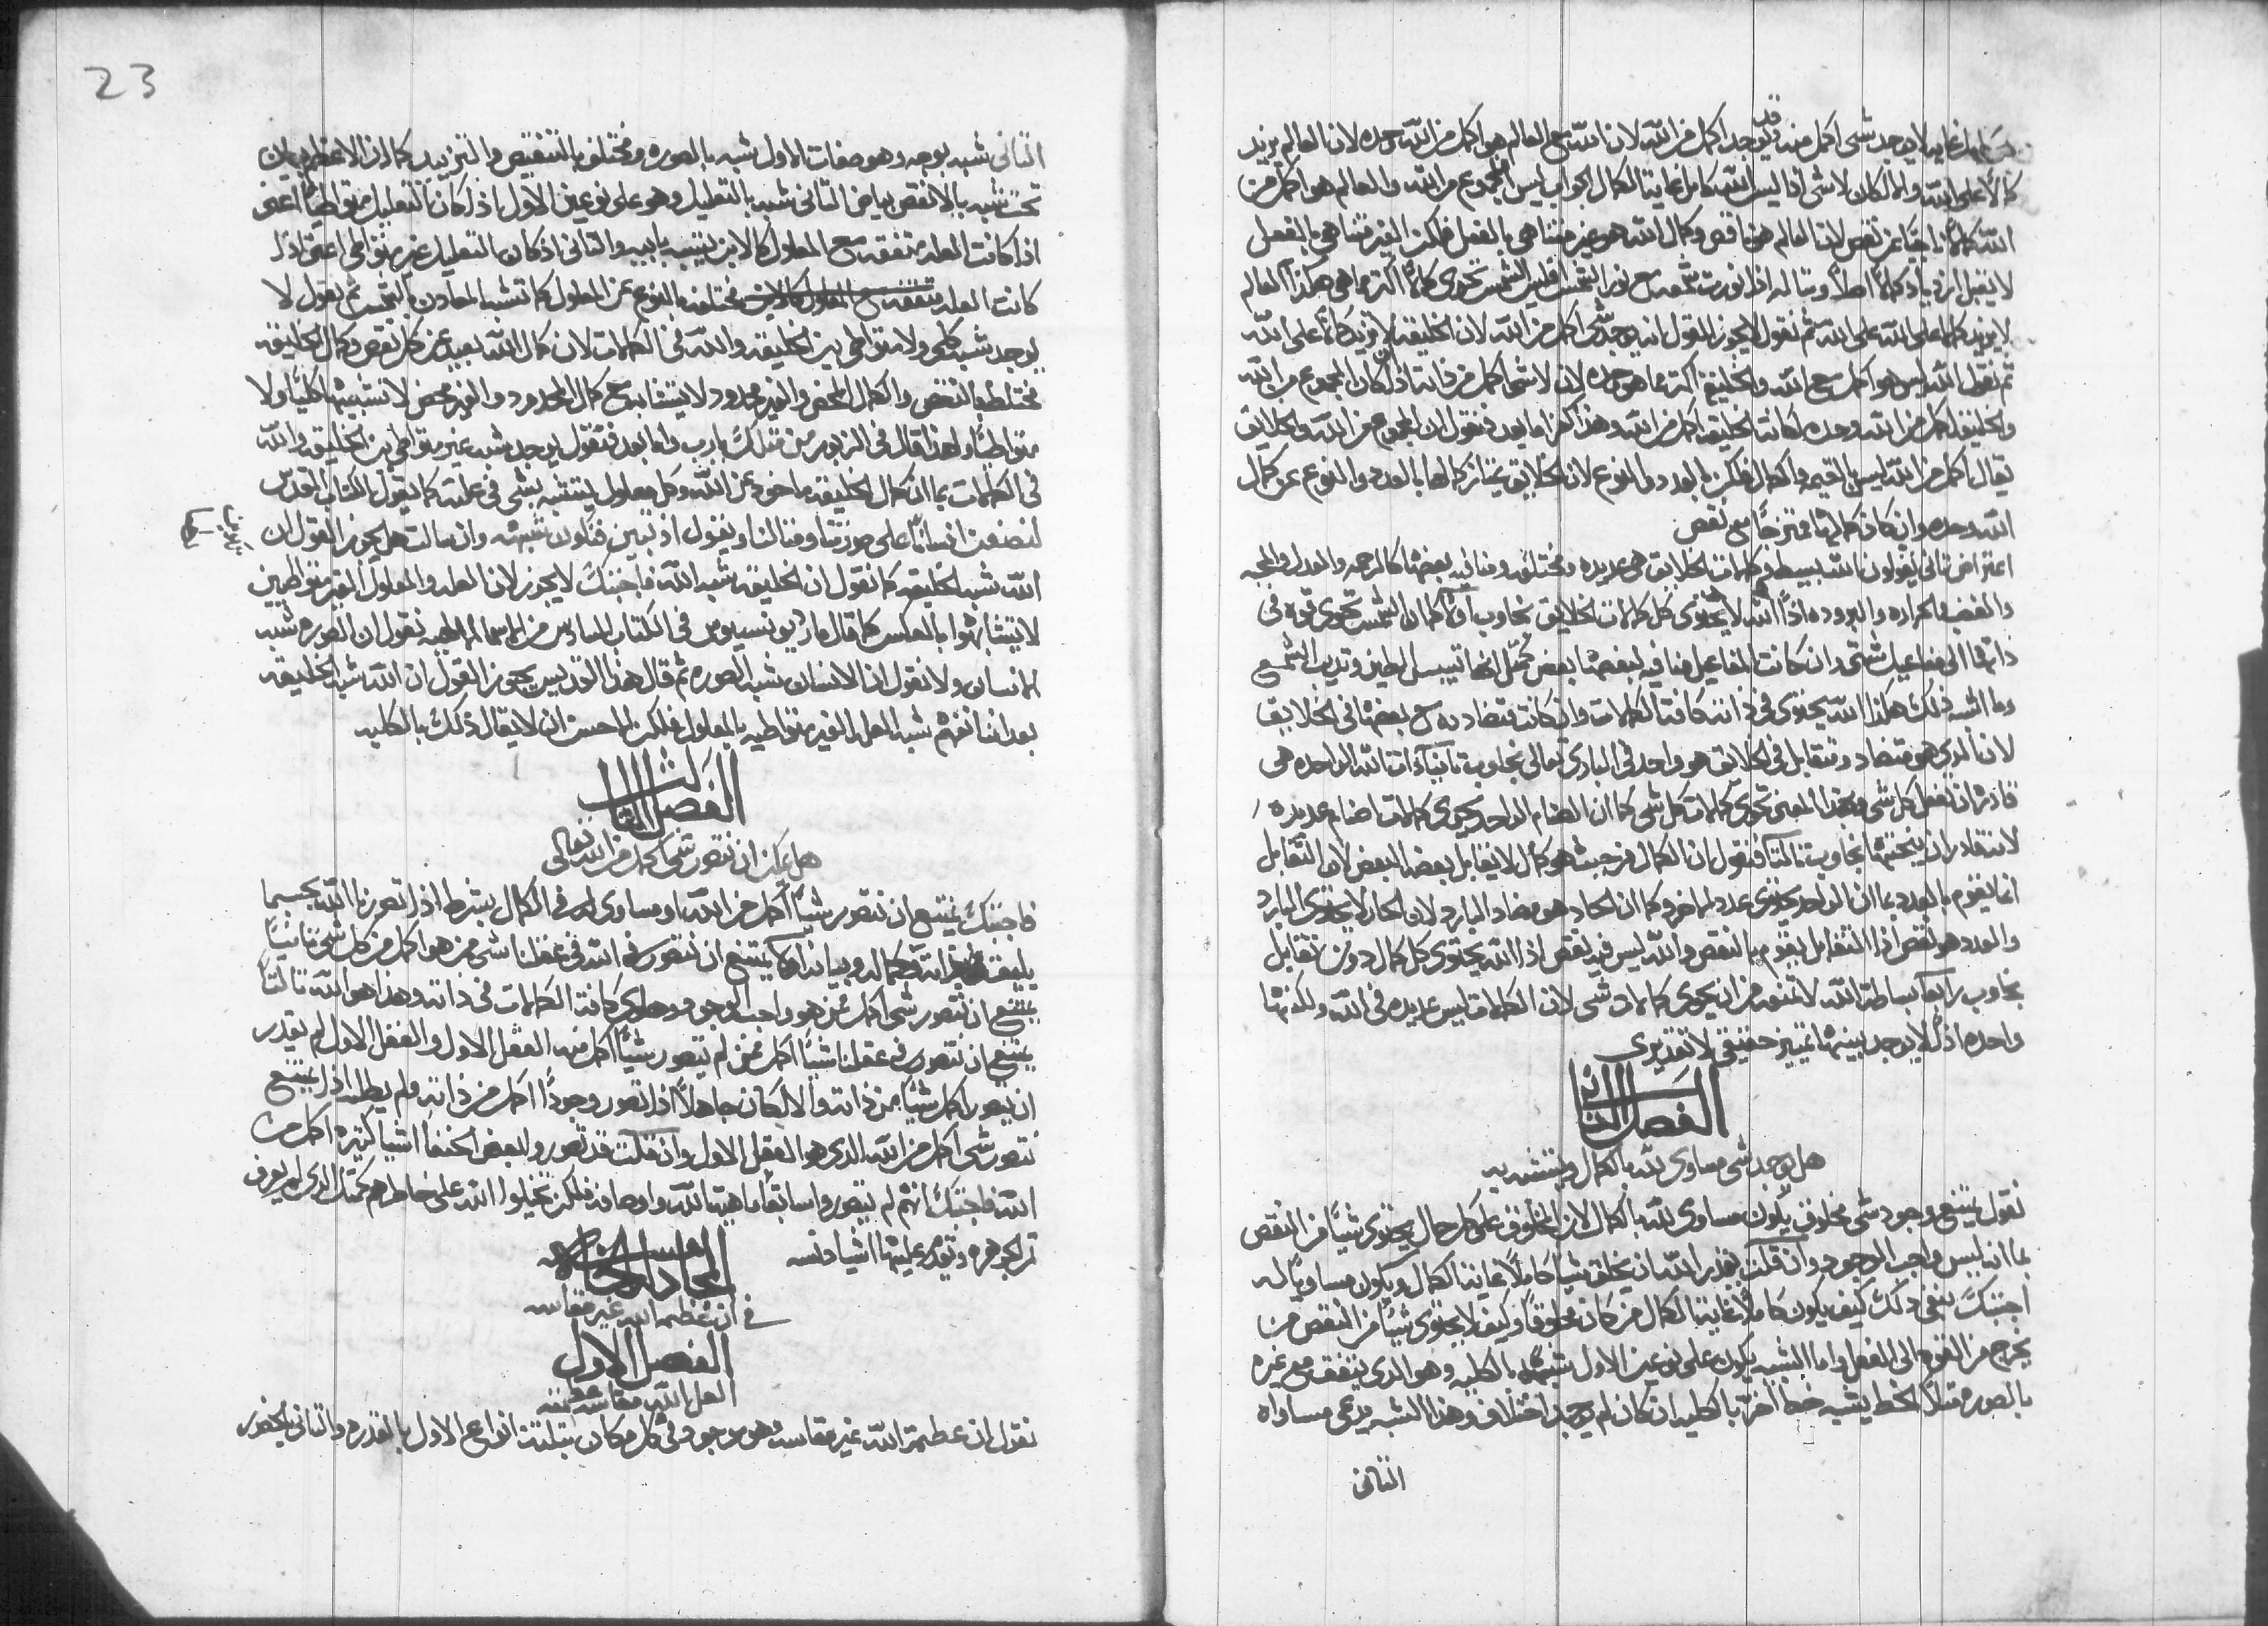 كامل غاية لا يوجد شى اكمل منه وقد يوجد اكمل من الله لان الله مع العالم هو اكمل من الله وحده لان العالم يزيد
كمالًا على الله والا لكان لا شى اذًا ليس الله كامل غاية الكمال الجواب ليس المجموع من الله والعالم هو اكمل من
الله كمالًا ناجيًا عن نقص لان العالم هو ناقص وكمال الله هو غير متناهى بالفعل فلكن الغير متناهى بالفعل
لا يقبل ازدياد كمالًا اصلًا ومثاله اذا نورت شمعه مع نور الشمس فليس الشمس تحوى كمالًا اكثر مما هى هكذا العالم
لا يزيد كمالًا على الله ثم نقول لا يجوز القول انه يوجد شى اكمل من الله لان الخليقه لا تزيد كمالًا على الله
ثم نقول الله ليس هو اكمل مع الله والخليقة اكثر مما هو وحده لانه لا شى اكمل من ذاته اذ لو كان المجموع من الله
والخليقه اكمل من الله وحده لكانت الخليقه اكمل من الله وهذا كفر اما بعد فنقول ان المجموع من الله والخلايق
يقال اكمل من الله ليس بالقيمه والكمال فلكن بالعدد والنوع لان الخلايق يمتاز كمالها بالعدد والنوع عن كمال
الله وحده وان كان كمالها ممتزجًا مع نقص
اعتراض ثانى يقولون الله بسيط وكمالات الخلايق هى عديده ومختلفه ومنافيه بعضها كالرحمه والعدل والمحبه
والغضب والحراره والبروده اذًا الله لا يحتوى كل كمالات الخلايق نجاوب اولًا كما ان الشمس تحوى قوه فى
ذاتها الى مفاعيل شتى وان كانت المفاعيل منافيه لبعضها بعض كمثل انها تيبس الطين وتذيب الشمع
وما اشبه ذلك هكذا الله يحتوى فى ذاته كافة الكمالات وان كانت متضاده مع بعضها فى الخلايق
لان الذى هو متضاد ومتقابل فى الخلايق هو واحد فى البارى تعالى نجاوب ثانيًا ذات الله الواحده هى
قادره ان تفعل كل شى وبهذا المعنى تحوى كمالات كل شى كما ان الصنام الواحد يحوى كمالات اصنام عديده
لانه قادر ان ينحتها نجاوب ثالثًا فنقول ان الكمال من حيث هو كمال لا يقابل بعضه البعض لان التقابل
انما يقوم بالعدد بما ان الواحد يحتوى عدد الاخر وكما ان الحار هو مضاد البارد لان الحار لا يحتوى البارد
والعدد هو نقص اذًا التقابل يقوم بالنقص والله ليس فيه نقص اذًا الله يحتوى كل كمال دون تقابل
نجاوب رابعًا بساطة الله لا تمنعه من ان يحوى كمالات شى لان الكمالات ليس عديده فى الله ولكنها
واحده اذ لا يوجد بينها تمييز حقيقى لا تقديرى
الفصل الثانى
هل يوجد شى مساوى لله بالكمال ويتشبه به
نقول يمتنع وجود شى مخلوق يكون مساوى لله بالكمال لان المخلوق على كل حال يحتوى شيًا من النقص
بما انه ليس واجب الوجود وان قلت يقدر الله ان يخلق شيًا كاملًا غاية الكمال ويكون مساويًا له
اجبتك بنفى ذلك كيف يكون كاملًا غاية الكمال من كان مخلوقًا وكيف لا يحتوى شيًا من النقص من
يخرج من القوه الى الفعل واما الشبه يكون على نوعين الاول شبهًا بالكليه وهو الذى يتفق مع غيره
بالصوره مثلًا الخط يشبه خط اخر بالكليه ان كان لم يوجد اختلاف وهذا الشبه يدعى مساواه
الثانى
23
الثانى شبه بوجه وهو صفات الاول شبه بالصوره ومختلف بالتنقيص والتزييد كما ان الاعظم بيان
تحت شبه بالانقص بياض الثانى شبه بالتعليل وهو على نوعين الاول اذ كان التعليل متواطيًا اعنى
اذا كانت العله متفقه مع المعلول كالابن يشبه بابيه والثانى اذ كان التعليل غير متواطى اعنى اذ
كانت العله متفقه مع المعلول كالابن مختلفه بالنوع عن المعلول كما تشبه المعادن بالشمس ثم نقول لا
يوجد شبه كلى ولا متواطى بين الخليقه والله فى الكمالات لان كمال الله بعيد عن كل نقص وكمال الخليقه
مختلط بالنقص والكمال المحض والغير محدود لا يتشابه مع كمال المحدود والغير محض لا تشبيهًا كليًا ولا
متواطيًا ولهذا قال فى الزبور من مثلك يا رب واما بعد فنقول يوجد شبه غير متواطى بين الخليقه والله
فى الكمالات بما ان كمال الخليقه ماخوذ من الله وكل معلول يتشبه بشى فى علته كما يقول الكتاب المقدس
لنصنعن انسانًا على صورتنا ومثالنا ويقول اذ تبين فنكون شبهه وان سالت هل يجوز القول ان
الله شبه الخليقه كما نقول ان الخليقه شبه الله فاجبتك لا يجوز لان العله والمعلول الغير متواطيين
لا يتشابهوا بالعكس كما قال مار ديونسيوس فى الكتاب السادس من الاسما الالهيه نقول ان الصوره شبه
الانسان ولا نقول ان الانسان شبه الصوره ثم قال هذا القديس يجوز القول ان الله شبه الخليقه
بعد اننا نفهم شبه العله الغير متواطيه بالمعلول فلكن الاحسن ان لا يقال ذلك بالكليه
الفصل الثالث
هل يمكن ان نتصور شى اكمل من الله تعالى
فاجبتك يمتنع ان نتصور شيًا اكمل من الله او مساوى له فى الكمال بشرط اذا تصورنا الله بحسبما
يليق بذاته وكماله وبيانه اولًا يمتنع ان نتصور فى عقلنا شى من هو اكمل من كل شى ثانيًا
يمتنع ان نتصور شى اكمل ممن هو واجب الوجود وحاوى كافة الكمالات فى ذاته وهذا هو الله ثالثًا
يمتنع ان نتصور فى عقلنا شيًا اكمل ممن لم يتصور شيًا اكمل منه العقل الاول والعقل الاول لم يقدر
ان يتصور اكمل شيًا من ذاته والا لكان جاهلًا اذا تصور وجودًا اكمل من ذاته ولم يطلبه اذًا يمتنع
نتصور شى اكمل من الله الذى هو العقل الاول وان قلت قد تصوروا بعض الحنفا اشيا كثيره اكمل من
الله فاجبتك انهم لم يتصوروا سابقًا ماهية الله واوصافه فلكن تخيلوا الله على خاطرهم كمثل الذى لم يعرف
ثمن الجوهره وتقدم عليها اشيا دنسه
المجادله
فى ان عظمة الله غير مقاسه
الفصل الاول
هل الله مقاسه عظمته
نقول ان عظمة الله غير مقاسه وهو موجود فى كل مكان بثلثة انواع الاول بالقدره والثانى بالحضور